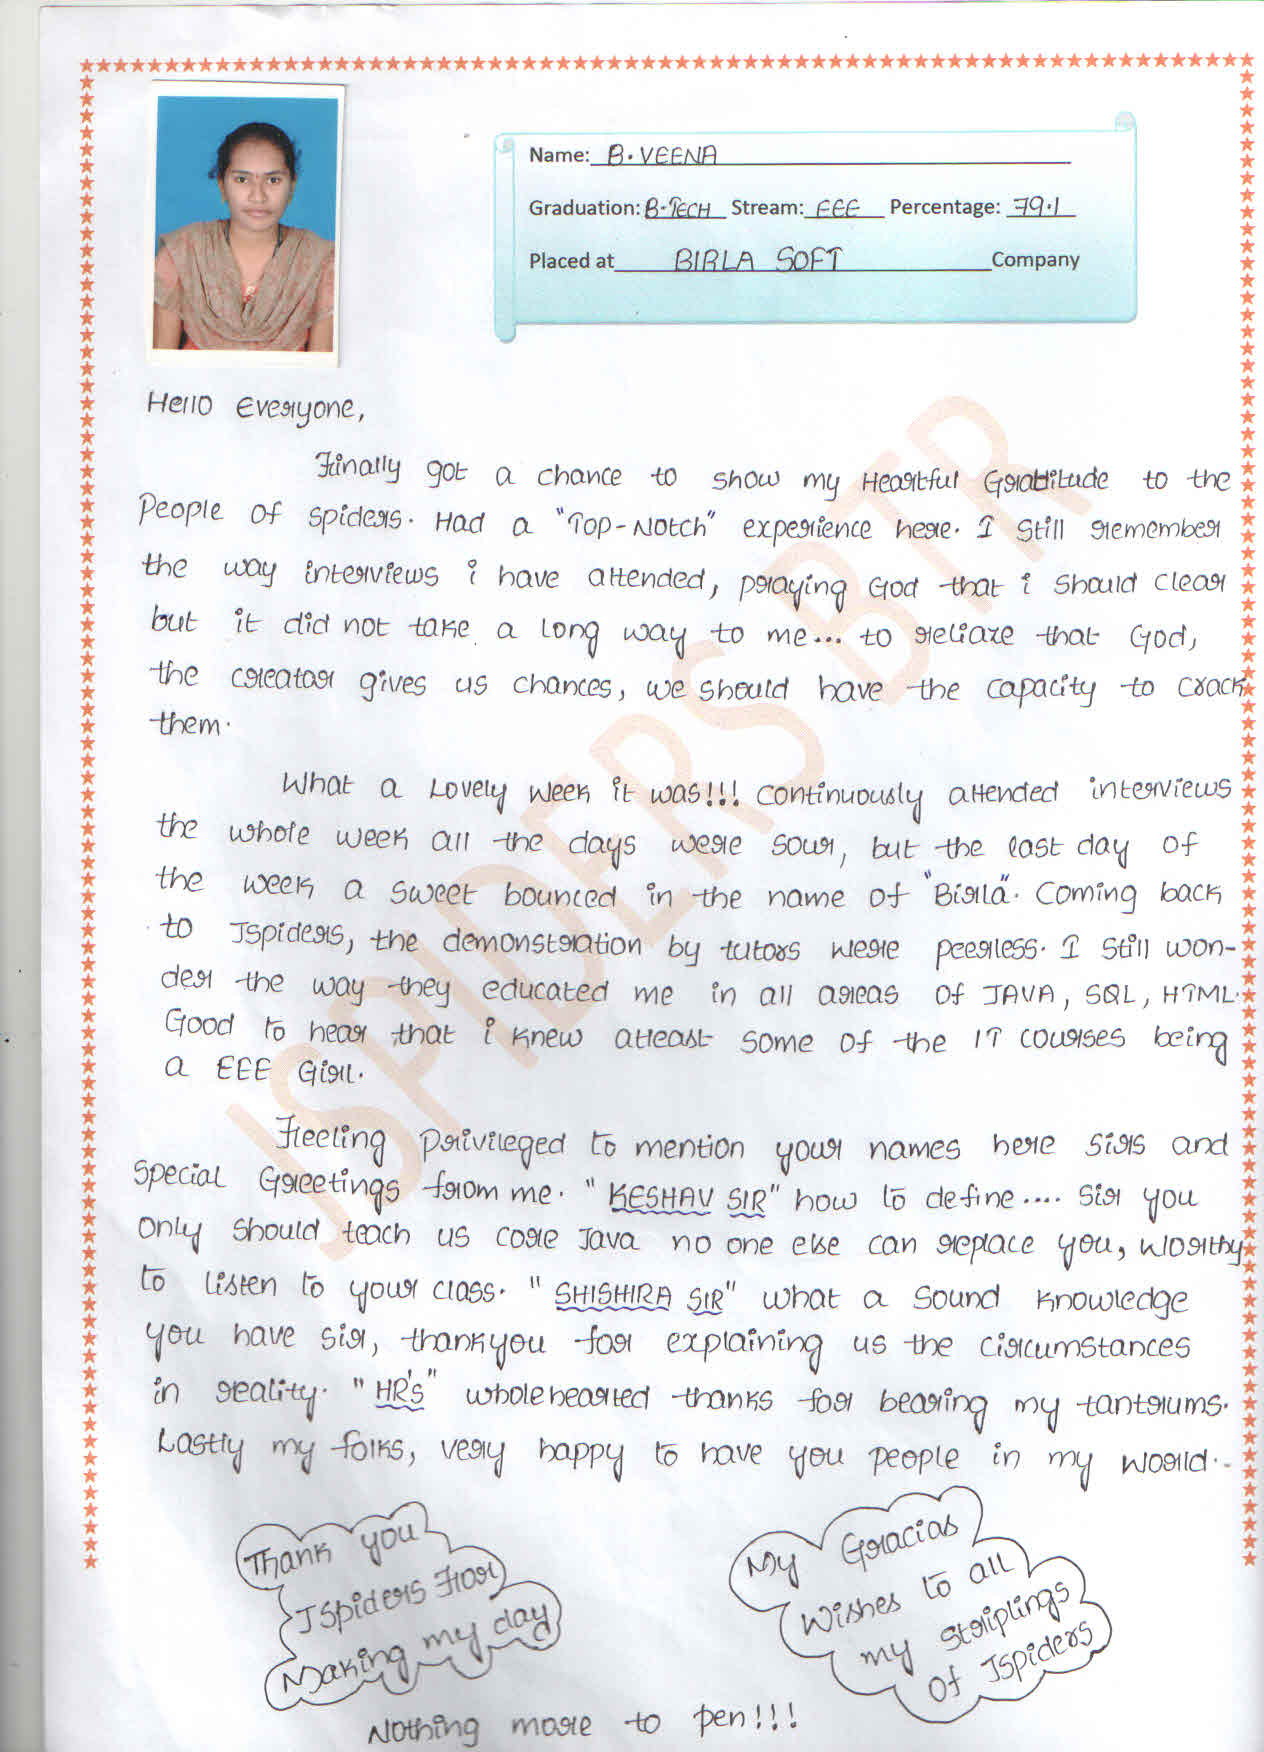 Name: B.VEENA
Graduation: B.TECH Stream: EEE Percentage: 79.1
Placed at BIRLA SOFT Company
Hello Everyone,
Finally got a chance to show my Heartful Gratitude to the
People of spiders. Had a "Top-Notch" experience here. I still remember
the way interviews i have attended, praying God that i should clear
but it did not take a long way to me... to reliaze that God,
the creator gives us chances, we should have the capacity to crack
them.
What a Lovely week it was!!! continuously attended interviews
the whole week all the days were sour, but the last day of
the week a sweet bounced in the name of "Birla". Coming back
to Jspiders, the demonstration by tutors were peerless. I still won-
der the way they educated me in all areas of JAVA, SQL, HTML.
Good to hear that i knew atleast some of the IT courses being
a EEE Girl.
Feeling privileged to mention your names here sirs and
special Greetings from me. "KESHAV SIR" how to define.... sir you
only should teach us core Java no one else can replace you, worthy
to listen to your class. "SHISHIRA SIR" what a sound knowledge
you have sir, thankyou for explaining us the circumstances
in reality. "HR's" wholehearted thanks for bearing my tantrums.
Lastly my folks, very happy to have you people in my world.
Thank you
Jspiders For
Making my day
My Gracias
Wishes to all
my striplings
of Jspiders
Nothing more to pen!!!
JSPIDERS BTR